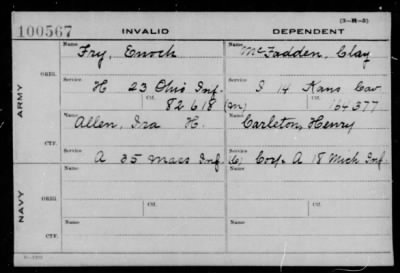 (3-H-5)
100567 INVALID DEPENDENT
Name Name
Fry, Enoch McFadden, Clay
ORIG.
Service Service
H 23 Ohio Inf. I 14 Kans Cav
Ctf. Ctf.
82618 (M) 164377
ARMY
Name Name
Allen, Ira H. Carleton, Henry
CTF.
Service Service
A 35 Mass Inf (6) Corp. A 18 Mich Inf.
Name Name
ORIG.
Ctf. Ctf.
NAVY
Name Name
CTF.